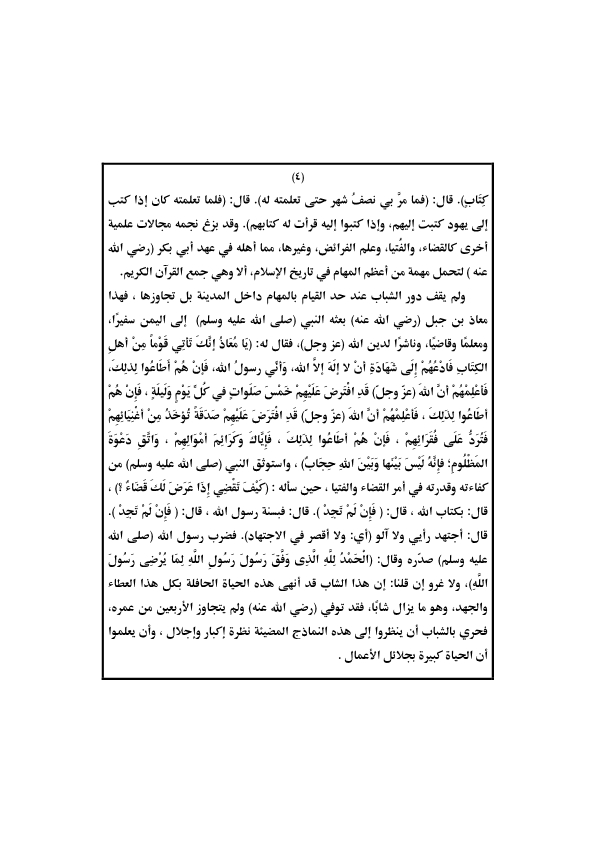 (٤)
كِتَابِ). قال: (فما مرَّ بي نصفُ شهر حتى تعلمته له). قال: (فلما تعلمته كان إذا كتب
إلى يهود كتبت إليهم، وإذا كتبوا إليه قرأت له كتابهم). وقد بزغ نجمه مجالات علمية
أخرى كالقضاء، والفُتيا، وعلم الفرائض، وغيرها، مما أهله في عهد أبي بكر (رضي الله
عنه ) لتحمل مهمة من أعظم المهام في تاريخ الإسلام، ألا وهي جمع القرآن الكريم.
ولم يقف دور الشباب عند حد القيام بالمهام داخل المدينة بل تجاوزها ، فهذا
معاذ بن جبل (رضي الله عنه) بعثه النبي (صلى الله عليه وسلم) إلى اليمن سفيرًا،
ومعلمًا وقاضيًا، وناشرًا لدين الله (عز وجل)، فقال له: (يَا مُعَاذُ إِنَّكَ تَأتِي قَوْماً مِنْ أهلِ
الكِتَابِ فَادْعُهُمْ إِلَى شَهَادَةِ أنْ لا إلَهَ إلاَّ الله، وَأنِّي رسولُ الله، فَإِنْ هُمْ أَطَاعُوا لِذلِكَ،
فَأعْلِمْهُمْ أنَّ اللهَ (عزّ وجل) قَدِ افْتَرضَ عَلَيْهِمْ خَمْسَ صَلَواتٍ في كُلِّ يَوْمٍ وَلَيلَةٍ ، فَإِنْ هُمْ
أطَاعُوا لِذلِكَ ، فَأعْلِمْهُمْ أنَّ اللهَ (عزّ وجل) قَدِ افْتَرَضَ عَلَيْهِمْ صَدَقَةً تُؤخَذُ مِنْ أغْنِيَائِهِمْ
فَتُرَدُّ عَلَى فُقَرَائِهِمْ ، فَإِنْ هُمْ أطَاعُوا لِذلِكَ ، فَإِيَّاكَ وَكَرَائِمَ أمْوَالِهِمْ ، وَاتَّقِ دَعْوَةَ
المَظْلُومِ؛ فإِنَّهُ لَيْسَ بَيْنَها وَبَيْنَ اللهِ حِجَابٌ) ، واستوثق النبي (صلى الله عليه وسلم) من
كفاءته وقدرته في أمر القضاء والفتيا ، حين سأله : (كَيْفَ تَقْضِي إِذَا عَرَضَ لَكَ قَضَاءٌ ؟) ،
قال: بكتاب الله ، قال: ( فَإِنْ لَمْ تَجِدْ ). قال: فبسنة رسول الله ، قال: ( فَإِنْ لَمْ تَجِدْ ).
قال: أجتهد رأيي ولا آلو (أي: ولا أقصر في الاجتهاد). فضرب رسول الله (صلى الله
عليه وسلم) صدّره وقال: (الْحَمْدُ لِلَّهِ الَّذِى وَفَّقَ رَسُولَ رَسُولِ اللَّهِ لِمَا يُرْضِى رَسُولَ
اللَّهِ)، ولا غرو إن قلنا: إن هذا الشاب قد أنهى هذه الحياة الحافلة بكل هذا العطاء
والجهد، وهو ما يزال شابًا، فقد توفي (رضي الله عنه) ولم يتجاوز الأربعين من عمره،
فحري بالشباب أن ينظروا إلى هذه النماذج المضيئة نظرة إكبار وإجلال ، وأن يعلموا
أن الحياة كبيرة بجلائل الأعمال .